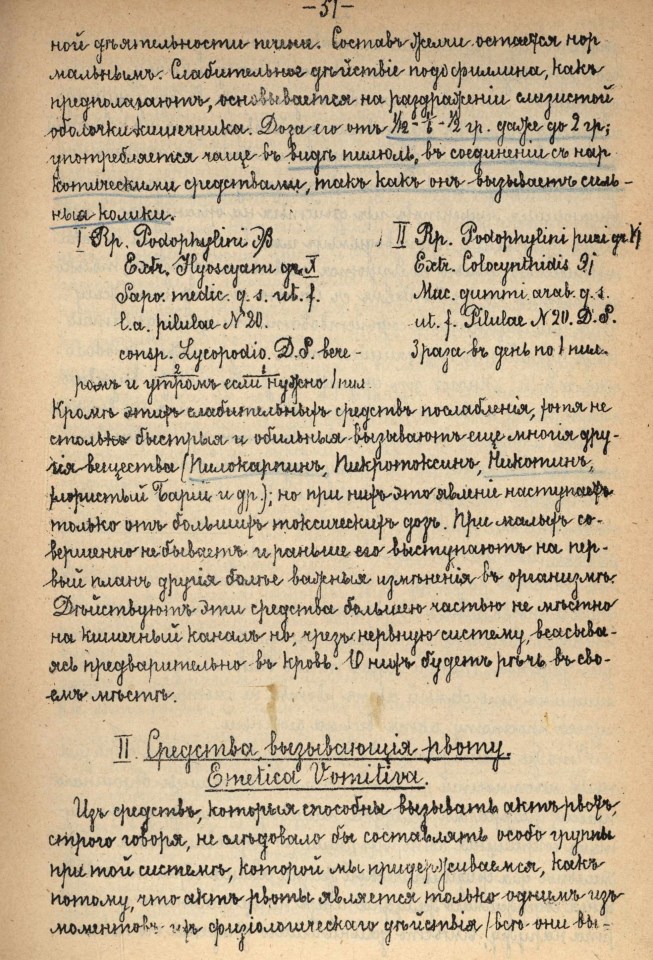 —51—
ной дѣятельности печени. Составъ желчи остается нор-
мальнымъ. Слабительное дѣйствіе подофиллина, какъ
предполагаютъ, основывается на раздраженіи слизистой
оболочки кишечника. Доза его отъ гр. даже до 2 гр;
употребляется чаще въ видѣ пилюль, въ соединеніи съ нар
котическими средствами, такъ какъ онъ вызываетъ силь-
ныя колики.
I Rp. Podophylini
Extr. Hyoscyami gr. X
Sapo. medic. q. s. ut. f.
l. a. pilulae N 20.
consp. Lycopodio. D. S. вече-
ромъ и утромъ если нужно 1 пил.
II Rp. Podophylini puri gr. VI
Extr. Colocynthidis
Muc. gummi arab. q. s.
ut. f. Pilulae N 20. D. S.
3 раза въ день по 1 пил.
Кромѣ этихъ слабительныхъ средствъ послабленія, хотя не
столько быстрыя и обильныя вызываютъ еще многія дру-
гія вещества (Пилокарпинъ, Пикротоксинъ, Никотинъ,
хлористый Барій и др.); но при нихъ это явленіе наступаетъ
только отъ большихъ токсическихъ дозъ. При малыхъ со-
вершенно не бываетъ и раньше его выступаютъ на пер-
вый планъ другія болѣе важныя измѣненія въ организмѣ.
Дѣйствуютъ эти средства большею частью не мѣстно
на кишечный каналъ но, чрезъ нервную систему, всасыва-
ясь предварительно въ кровь. О нихъ будетъ рѣчь въ сво-
емъ мѣстѣ.
II. Средства, вызывающія рвоту.
Emetica Vomitiva.
Изъ средствъ, которыя способны вызывать актъ рвоты,
строго говоря, не слѣдовало бы составлять особо группы
при той системѣ, которой мы придерживаемся, какъ
потому, что актъ рвоты является только однимъ изъ
моментовъ ихъ физіологическаго дѣйствія (всѣ они вы-